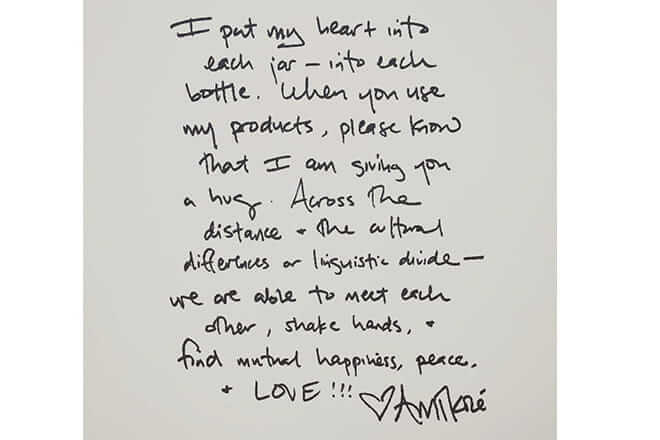 I put my heart into
each jar – into each
bottle. When you use
my products, please know
that I am giving you
a hug. Across the
distance + the cultural
differences or linguistic divide –
we are able to meet each
other, shake hands, +
find mutual happiness, peace,
+ LOVE!!! ♡